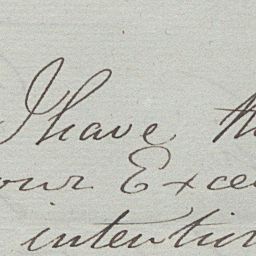 I have th
our Exce
intention